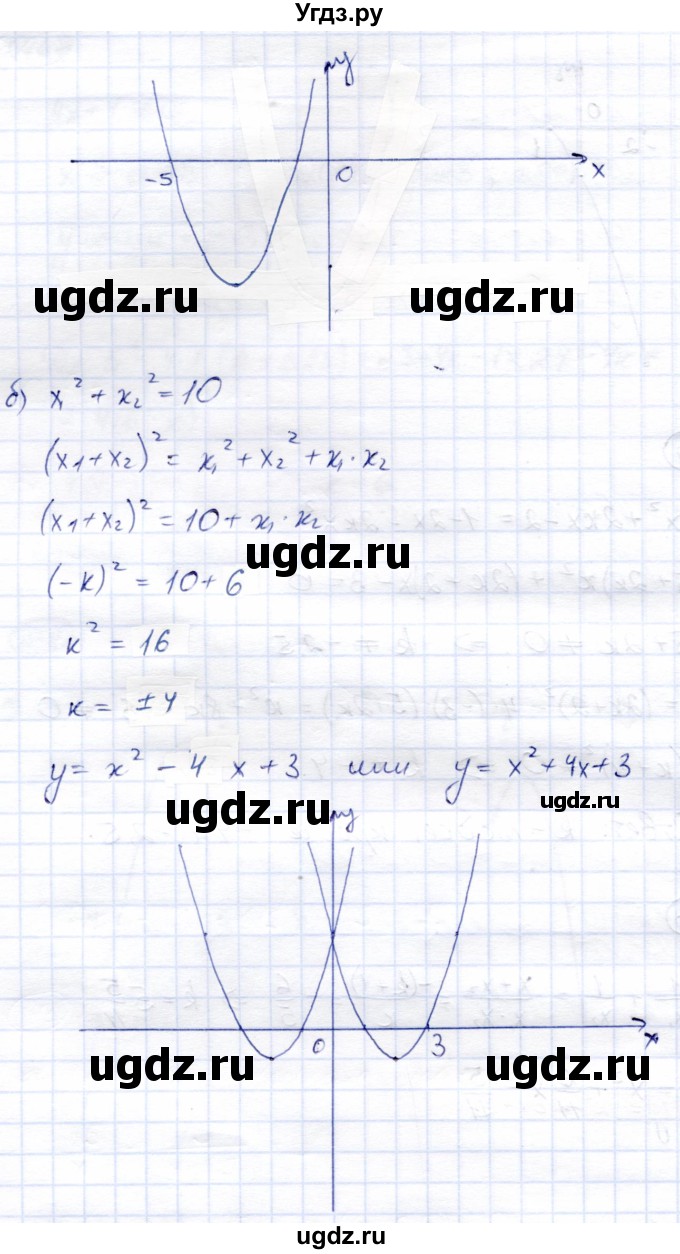 Угдз.ру
y
-5 0 x
ugdz.ru ugdz.ru
б) x₁² + x₂² = 10
(x1+x2)² = x₁² + x₂² + x₁ · x₂
(x1+x2)² = 10 + x₁ · x₂
ugdz.ru
(-к)² = 10 + 6
к² = 16
к = ±4
y = x² - 4 x + 3 или y = x² + 4x + 3
ugdz.ru ugdz.ru
y
0 3 x
ugdz.ru ugdz.ru
ugdz.ru